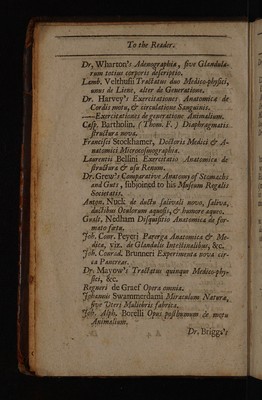 To the Reader.
Dr, Wharton's Adenographia, sive Glandula-
rum totius corporis descriptio.
Lamb. Velthusii Tractatus duo Medico-physici,
unus de Liene, alter de Generatione.
Dr. Harvey's Exercitationes Anatomicæ de
Cordis motu, & circulatione Sanguinis.
—Exercitationes de generatione Animalium.
Casp. Bartholin. (Thom. F.) Diaphragmatis
structura nova.
Francisci Stockhamer, Doctoris Medici & A-
natomici Microcosmographia.
Laurentii Bellini Exercitatio Anatomica de
structura & usu Renum.
Dr. Grew's Comparative Anatomy of Stomachs
and Guts, subjoined to his Musæum Regalis
Societatis.
Anton. Nuck de ductu salivali novo, saliva,
ductibus Oculorum aquosis, & humore aqueo.
Gualt. Nedham Disquisitio Anatomica de for-
mato fœtu.
Joh. Conr. Peyeri Parerga Anatomica & Me-
dica, viz. de Glandulis Intestinalibus, &c.
Joh. Conrad. Brunneri Experimenta nova cir-
ca Pancreas.
Dr. Mayow's Tractatus quinque Medico-phy-
sici, &c.
Regneri de Graef Opera omnia.
Johannis Swammerdami Miraculum Naturæ,
sive Uteri Muliebris fabrica.
Joh. Alph. Borelli Opus posthumum de motu
Animalium.
Dr. Briggs's